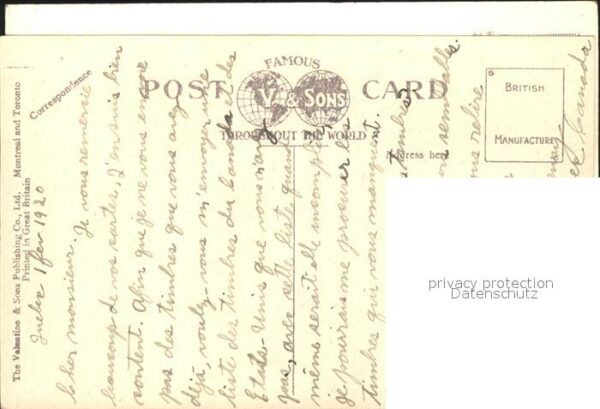 The Valentine & Sons Publishing Co., Ltd. Montreal and Toronto
Printed in Great Britain
Correspondence
FAMOUS
POST CARD
V & SONS
THROUGHOUT THE WORLD
Address here
BRITISH
MANUFACTURE
Quebec 1 fev 1920
Cher monsieur. Je vous remercie
beaucoup de vos cartes, j'en suis bien
content. Afin que je ne vous envoie
pas des timbres que vous avez
déjà, voulez-vous m'envoyer une
liste des timbres du Canada et des
Etats-Unis que vous n'avez
pas, avec cette liste quand
même serait elle incomplète
je pourrais me procurer les
timbres qui vous manquent.
timbres
vous semble
vous relire
Canada
privacy protection
Datenschutz